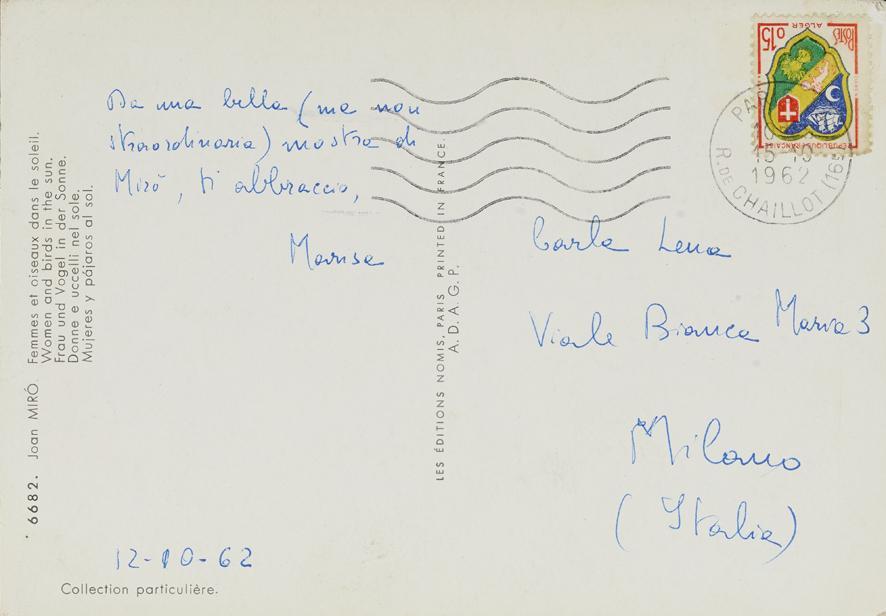 Da una bella (ma non
straordinaria) mostra di
Miró, ti abbraccio,
Marisa
12-10-62
Collection particulière.
6682. Joan MIRÓ. Femmes et oiseaux dans le soleil.
Women and birds in the sun.
Frau und Vogel in der Sonne.
Donne e uccelli nel sole.
Mujeres y pájaros al sol.
LES ÉDITIONS NOMIS, PARIS PRINTED IN FRANCE.
A.D.A.G.P.
ALGER
0,15
POSTES
REPUBLIQUE FRANÇAISE
PAR
15-10
1962
R. DE CHAILLOT (16E)
Carla Lena
Viale Bianca Maria 3
Milano
(Italia)